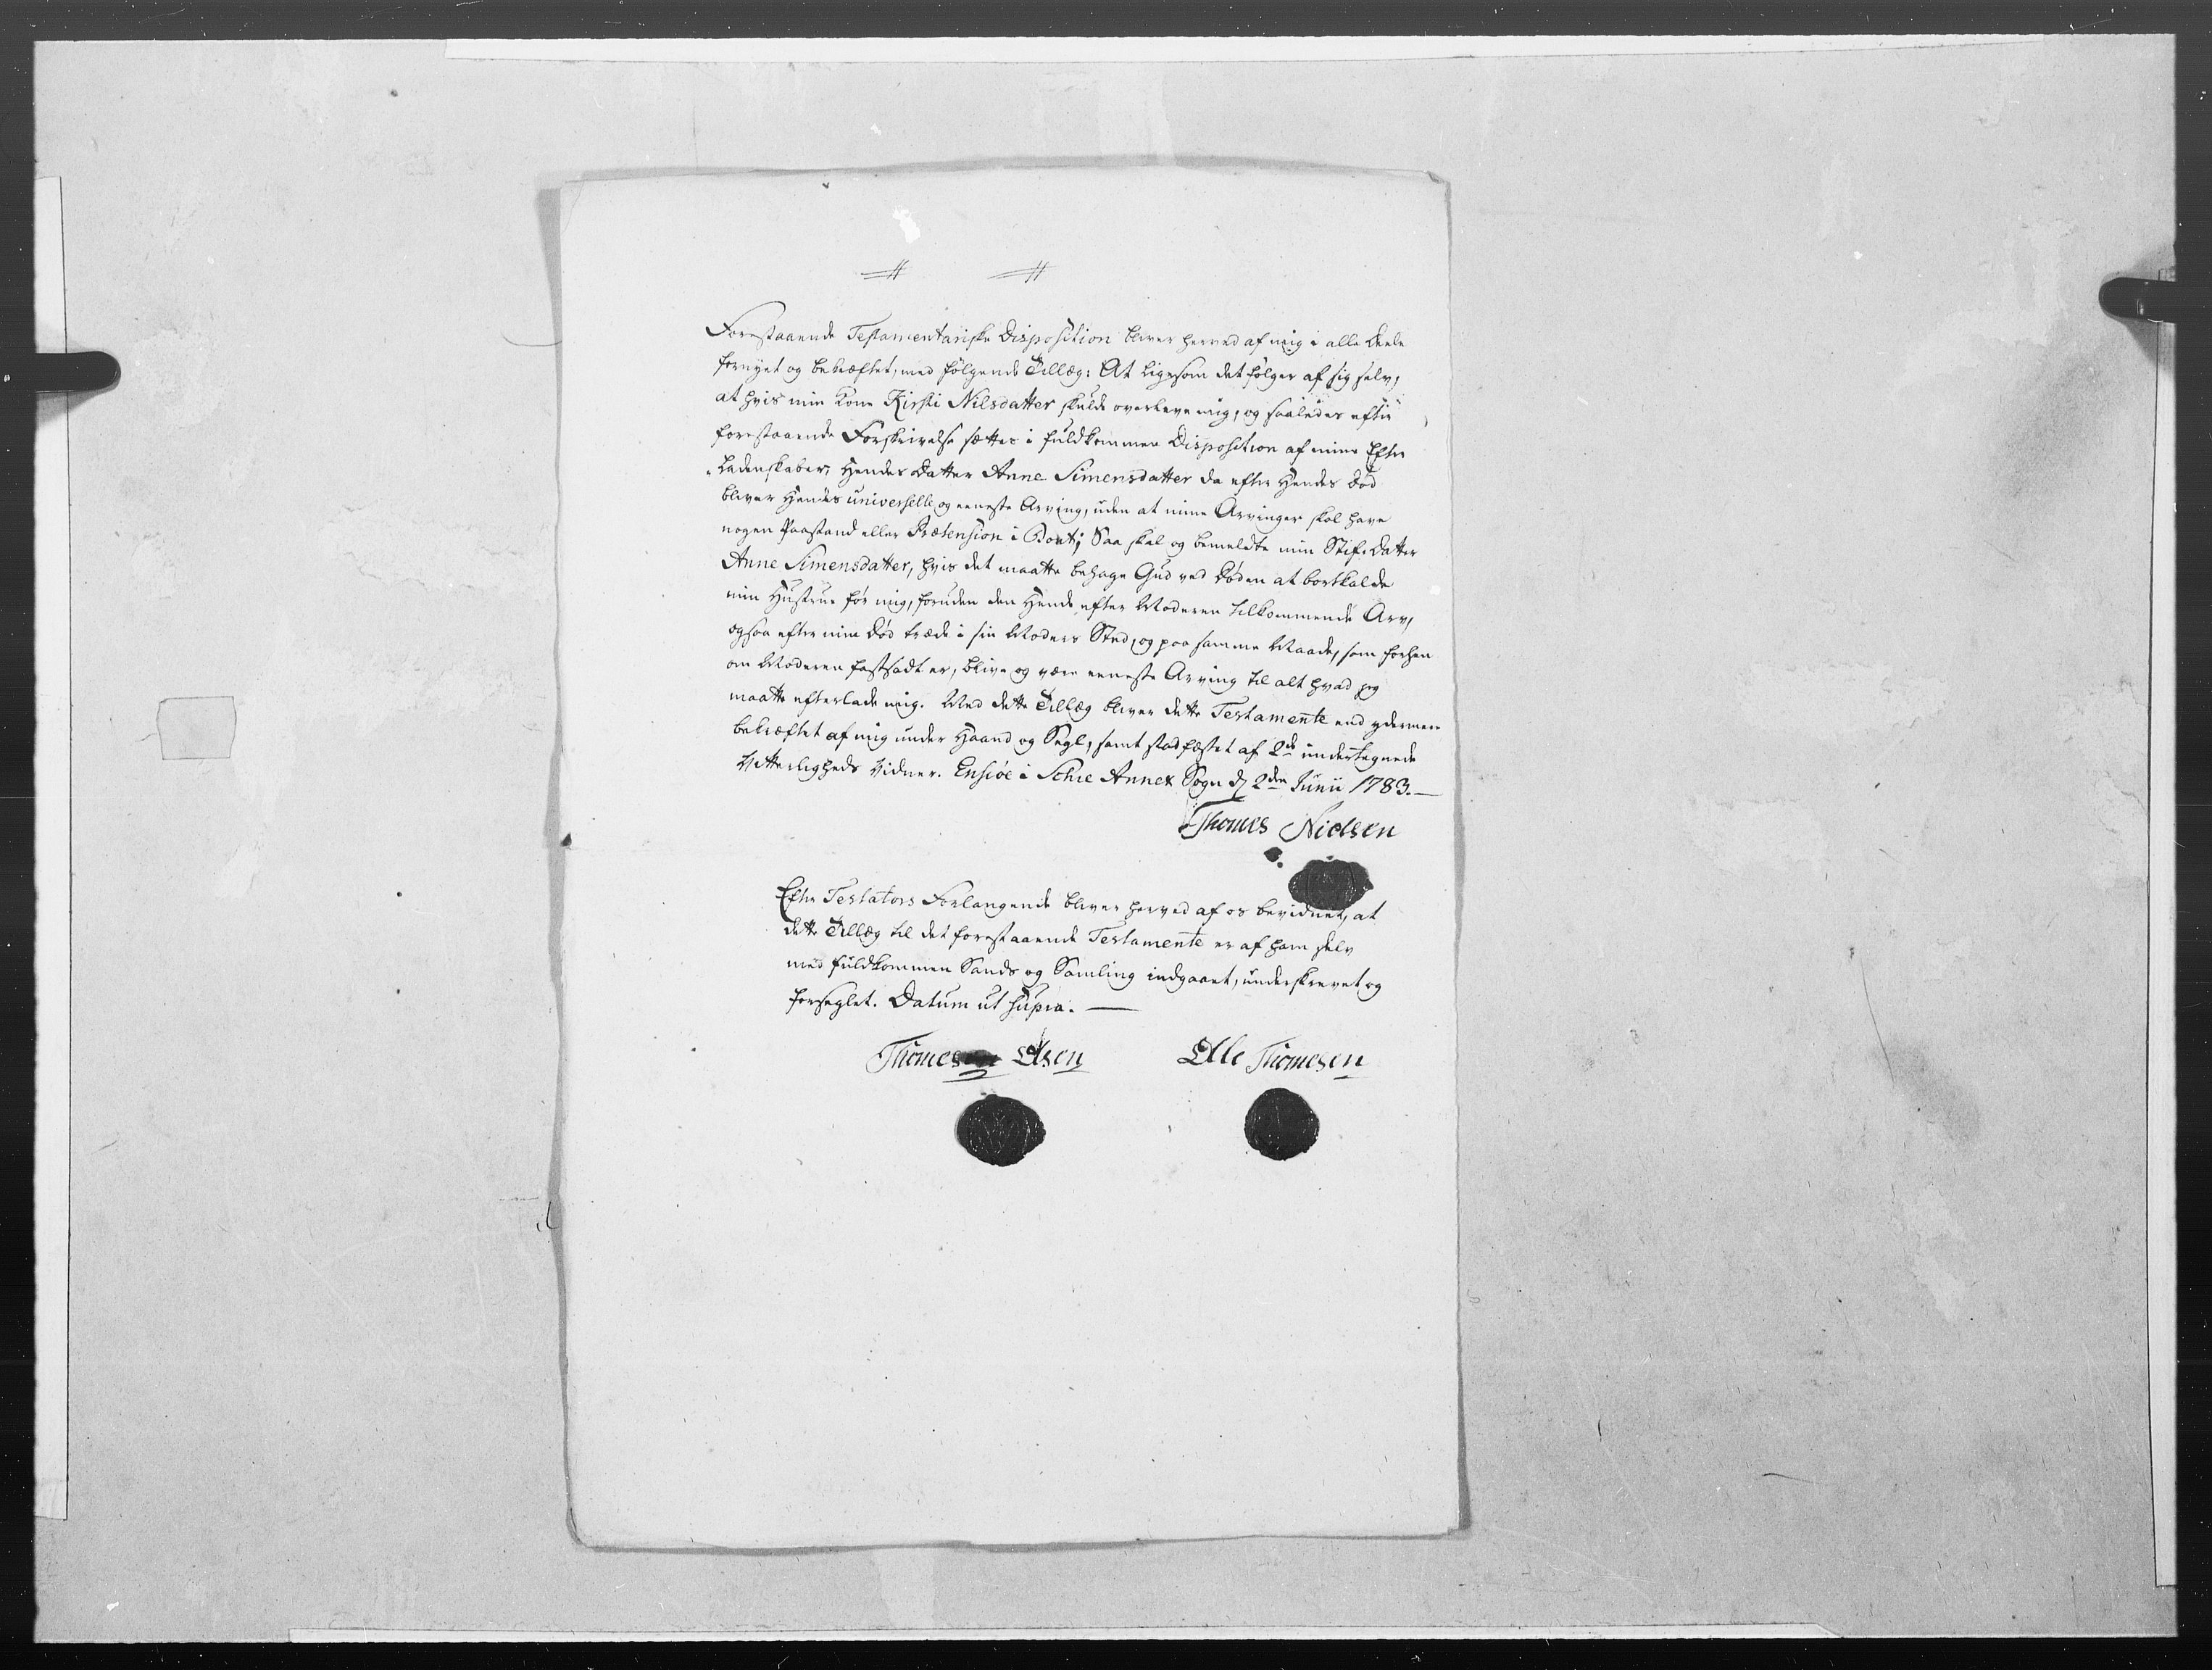 Forestaaende Testamentariske Disposition bliver herved af mig i alle Deele
fornyet og bekræftet, med følgende Tillæg: At ligesom det følger af sig selv,
at hvis min Kone Kirsti Nilsdatter skulde overleve mig, og saaledes efter
forestaaende Forskrivelse sættes i fuldkommen Disposition af mine Efter
-ladenskaber, Hendes Datter Anne Simensdatter da efter Hendes Død
bliver Hendes universelle og eeneste Arving, uden at mine Arvinger skal have
nogen Paastand eller Prætension i Boet; Saa skal og bemeldte min Stif-Datter
Anne Simensdatter, hvis det maatte behage Gud ved Døden at bortkalde
min Hustrue før mig, foruden den Hende efter Moderen tilkommende Arv,
ogsaa efter min Død træde i sin Moders Sted, og paa samme Maade, som forhen
om Moderen fastsadt er, blive og være eeneste Arving til alt hvad jeg
maatte efterlade mig. Med dette Tillæg bliver dette Testamente end ydermere
bekræftet af mig under Haand og Segl, samt stadfæstet af 2de undertegnede
Vitterligheds Vidner. Ensiøe i Schie Annex Sogn d 2den Junii 1783.—
Thomes Nielsen
Efter Testators Forlangende bliver herved af os bevidnet, at
dette Tillæg til det forestaaende Testamente er af ham selv
med fuldkommen Sands og Samling indgaaet, underskrevet og
forseglet. Datum ut supra.—
Thomes Olsen Olle Thomesen